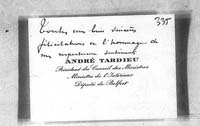 335
Toutes mes bien sincères
félicitations et l'hommage de
mes respectueux sentiments
ANDRÉ TARDIEU
Président du Conseil des Ministres
Ministre de l'Intérieur
Député de Belfort